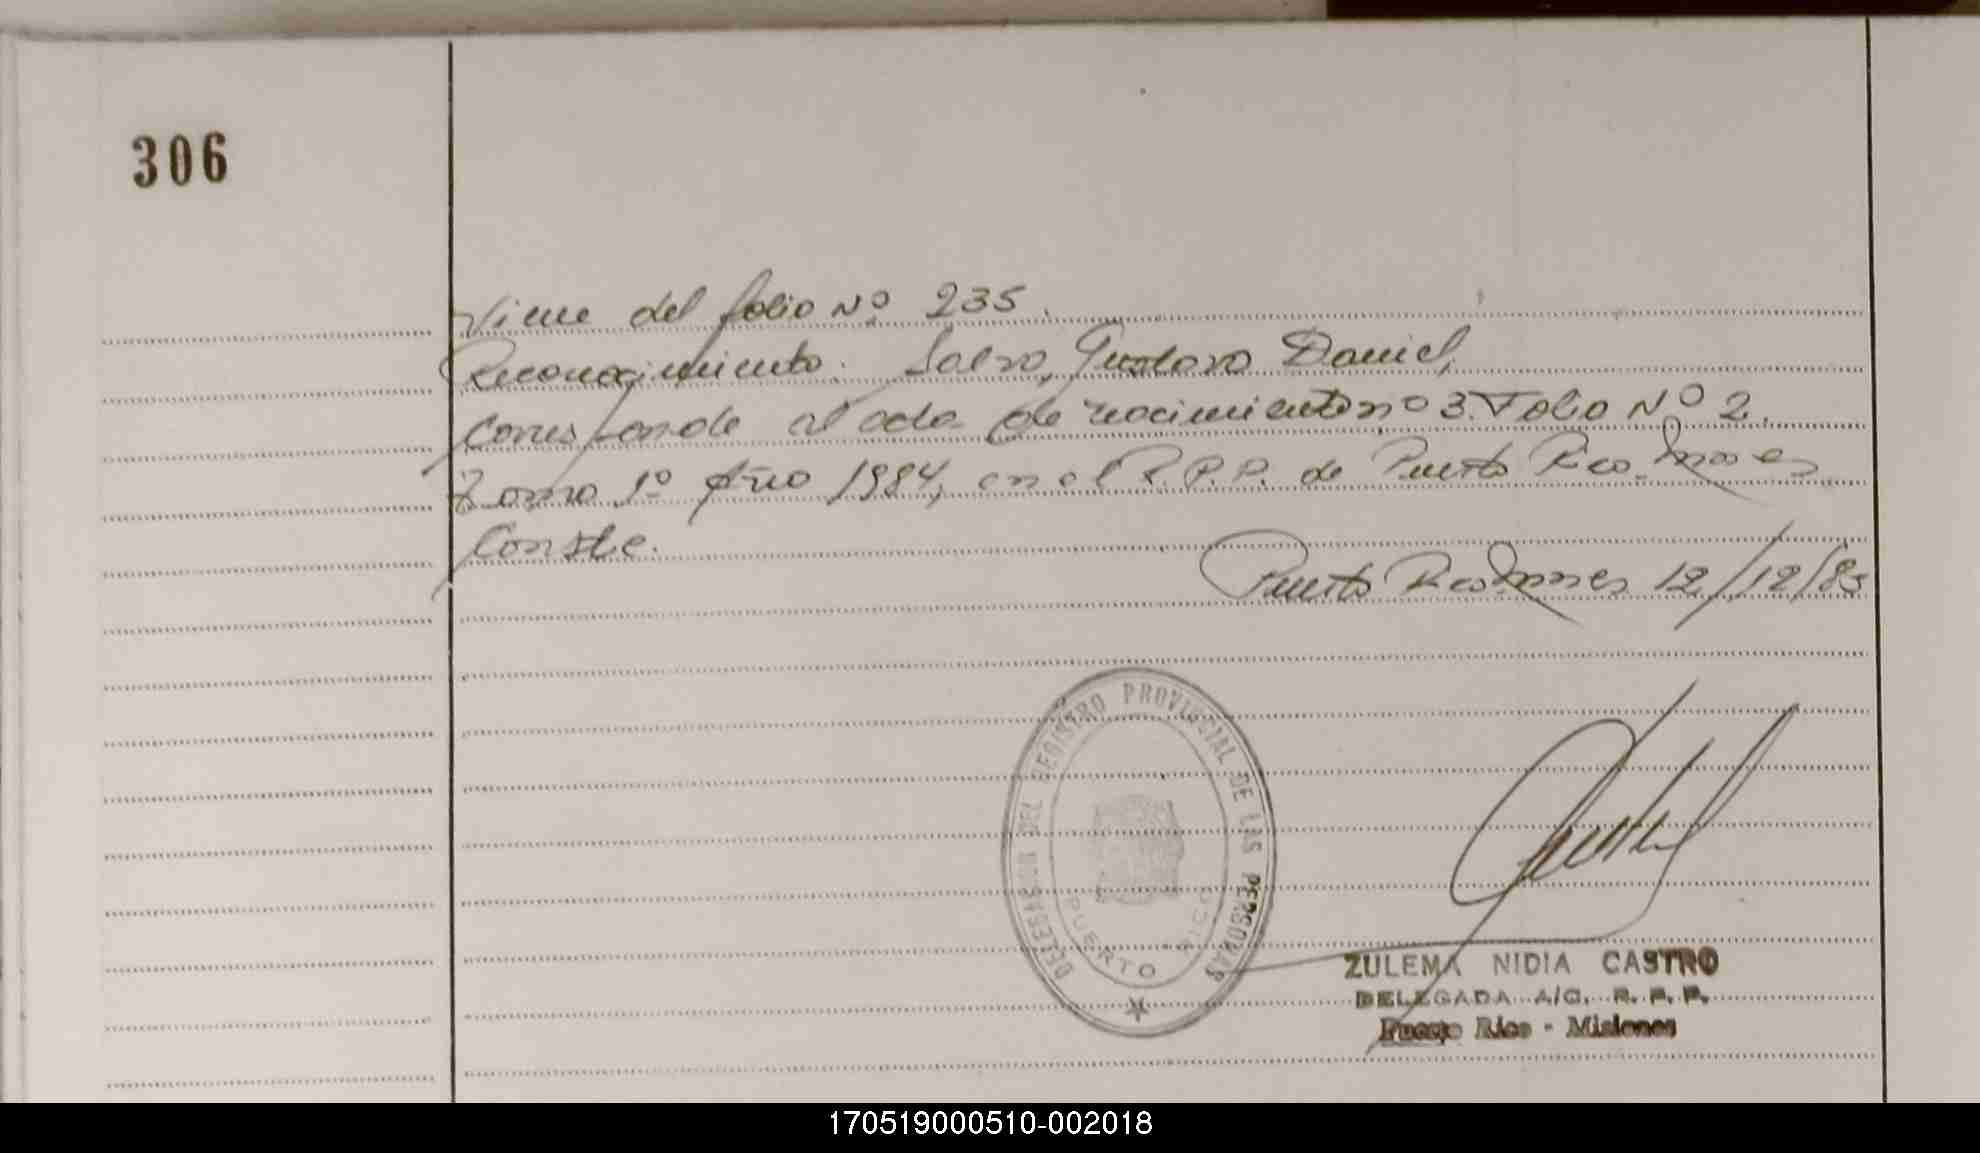 306
Viene del folio Nº 235.
Reconocimiento. Gustavo Daniel,
Corresponde al acta de nacimiento nº 3. Folio Nº 2.
Tomo 1º Año 1984, en el R.P.P. de Puerto Rico. Mnes
Conste.
Puerto Rico Mnes 12/12/85
DELEGACION DEL REGISTRO PROVINCIAL DE LAS PERSONAS
PUERTO RICO
ZULEMA NIDIA CASTRO
DELEGADA A/C. R. P. P.
Puerto Rico - Misiones
170519000510-002018